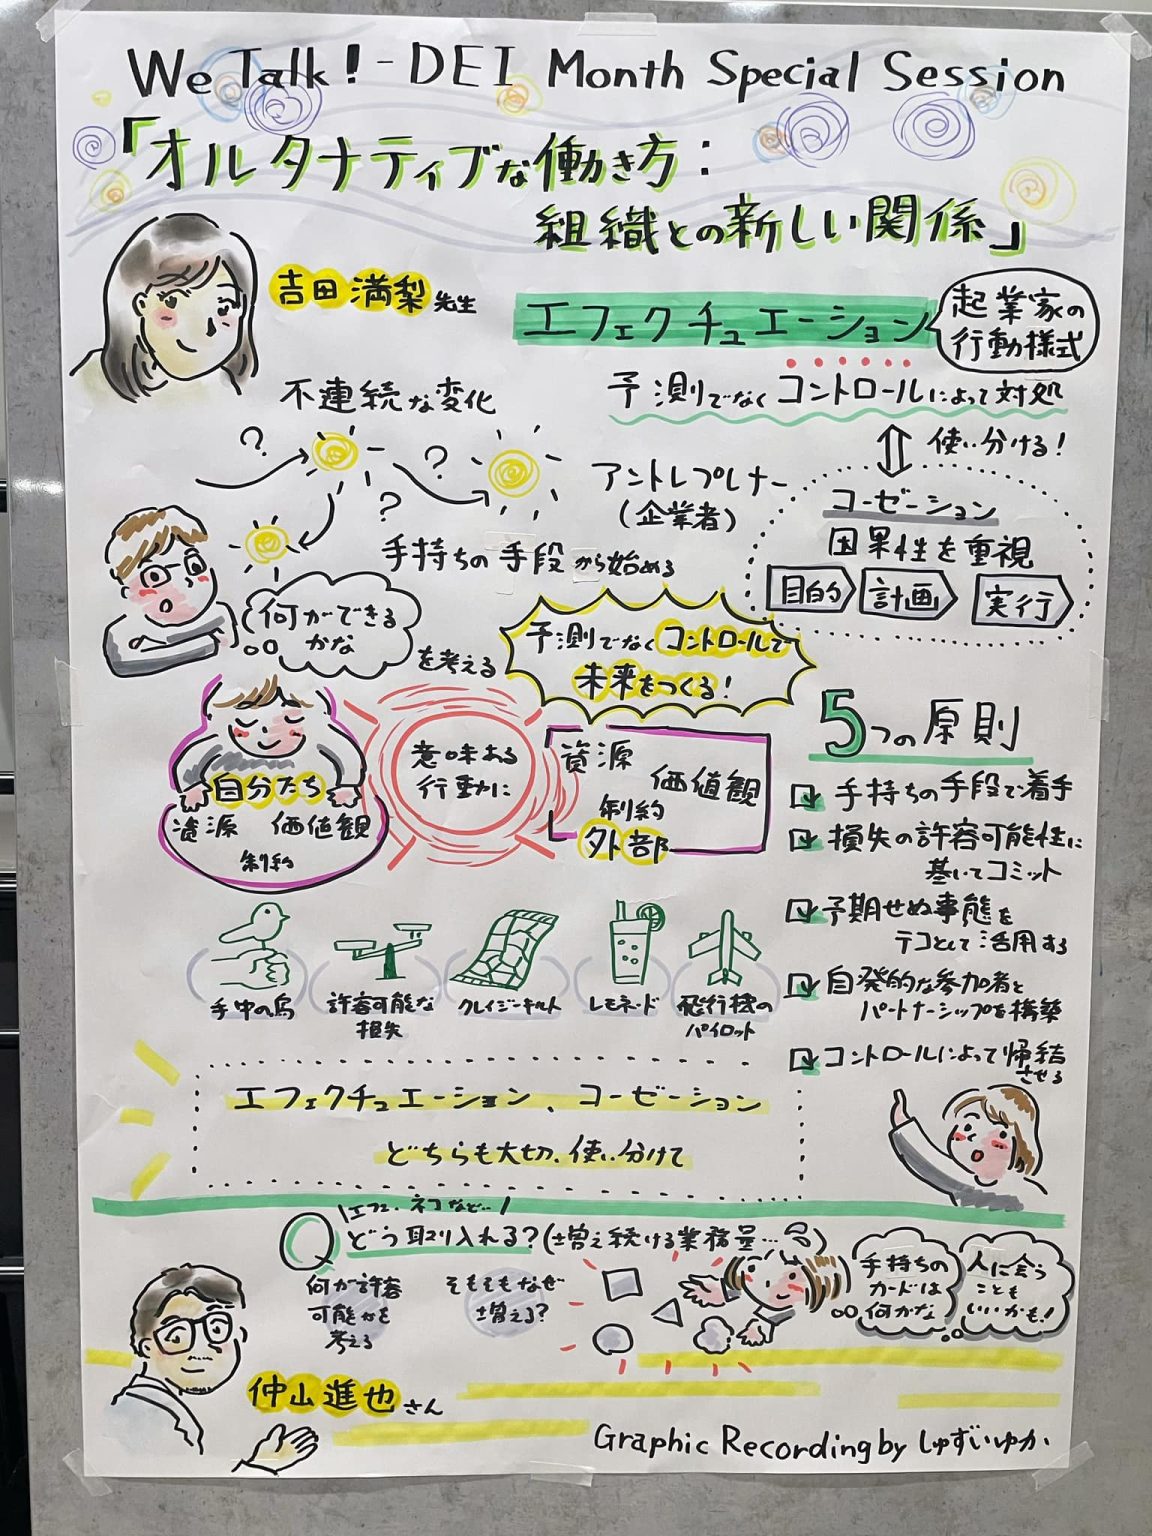 We Talk! - DEI Month Special Session
「オルタナティブな働き方:
組織との新しい関係」
吉田満梨先生
エフェクチュエーション
起業家の
行動様式
予測でなくコントロールによって対処
使い分ける!
コーゼーション
因果性を重視
目的
計画
実行
不連続な変化
?
?
?
アントレプレナー
(企業者)
手持ちの手段から始める
何ができる
かな
を考える
予測でなくコントロールで
未来をつくる!
自分たち
資源 価値観
制約
意味ある
行動に
資源
価値観
制約
外部
5つの原則
手持ちの手段で着手
損失の許容可能性に
基いてコミット
予期せぬ事態を
テコとして活用する
自発的な参加者と
パートナーシップを構築
コントロールによって帰結
させる
手中の鳥
許容可能な
損失
クレイジーキルト
レモネード
飛行機の
パイロット
エフェクチュエーション、コーゼーション
どちらも大切、使い分けて
エフェ、ネコなど…
Q どう取り入れる?(増え続ける業務量…)
何が許容
可能かを
考える
そもそもなぜ
増える?
手持ちの
カードは
何かな
人に会う
ことも
いいかも!
仲山進也さん
Graphic Recording by しゅずいゆか